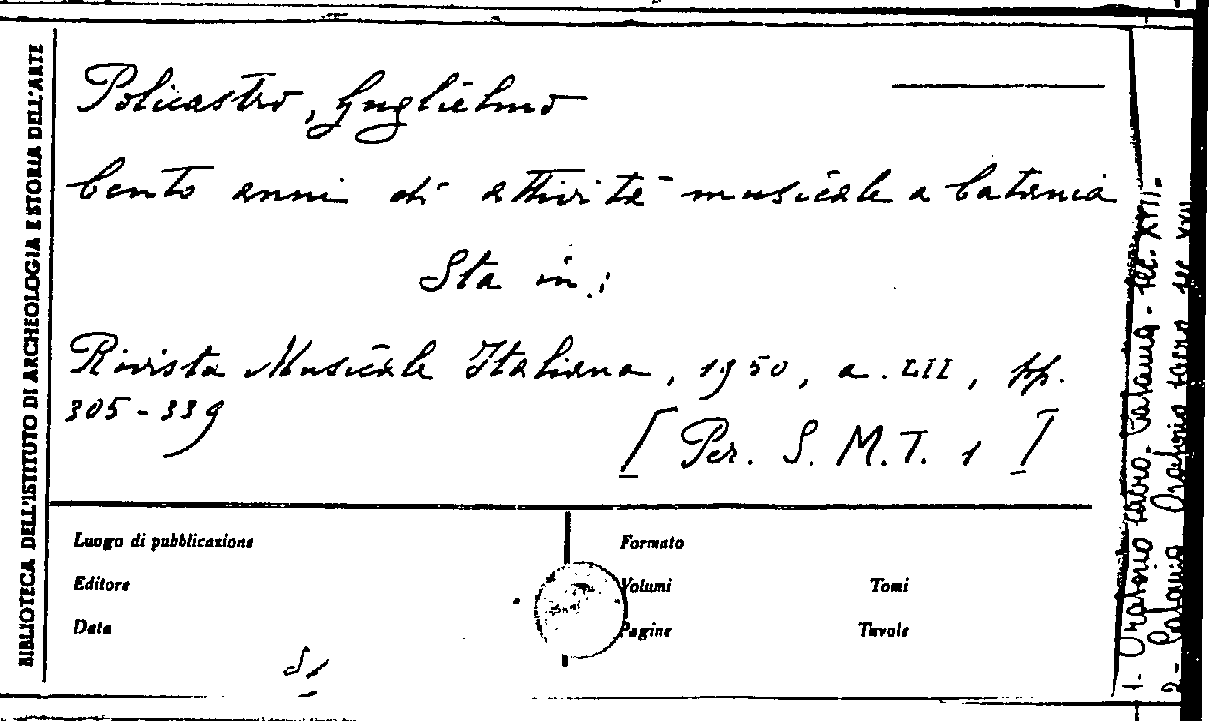 BIBLIOTECA DELL'ISTITUTO DI ARCHEOLOGIA E STORIA DELL'ARTE
Policastro, Guglielmo
Cento anni di attività musicale a Catania
Sta in:
Rivista Musicale Italiana, 1950, a. LII, pp.
305-339
[Per. S. M. T. 1]
Luogo di pubblicazione
Formato
Editore
Volumi
Tomi
Data
Pagine
Tavole
1 - Oratorio sacro. Catania - sec. XVII.
2 - Catania Oratorio sacro sec XVII